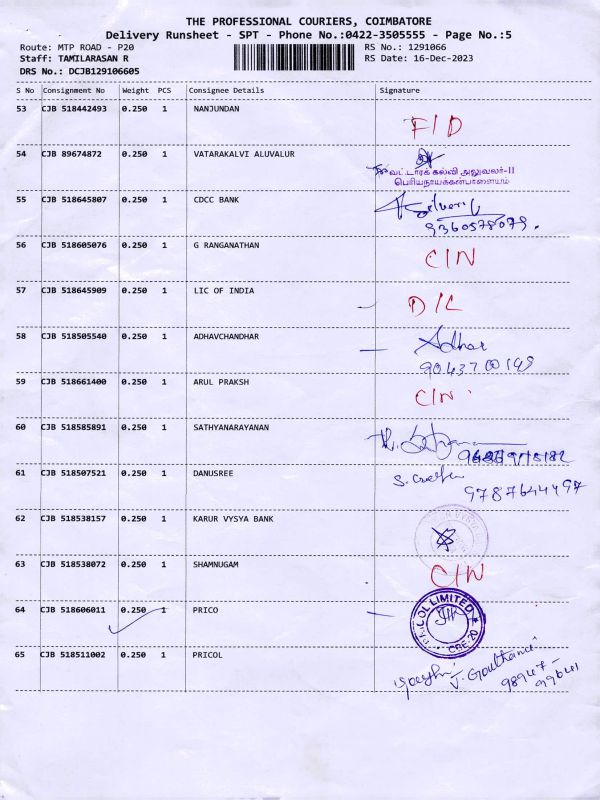 THE PROFESSIONAL COURIERS, COIMBATORE
Delivery Runsheet - SPT - Phone No.:0422-3505555 - Page No.:5
Route: MTP ROAD - P20 RS No.: 1291066
Staff: TAMILARASAN R RS Date: 16-Dec-2023
DRS No.: DCJB129106605
S No Consignment No Weight PCS Consignee Details Signature
53 CJB 518442493 0.250 1 NANJUNDAN
F/D
54 CJB 89674872 0.250 1 VATARAKALVI ALUVALUR
வட்டாரக் கல்வி அலுவலர்-II
பெரியநாயக்கன்பாளையம்
55 CJB 518645807 0.250 1 CDCC BANK
9360578079.
56 CJB 518605076 0.250 1 G RANGANATHAN
C/N
57 CJB 518645909 0.250 1 LIC OF INDIA
D/L
58 CJB 518505540 0.250 1 ADHAVCHANDHAR
Adhar
59 CJB 518661400 0.250 1 ARUL PRAKSH
C/N
60 CJB 518585891 0.250 1 SATHYANARAYANAN
61 CJB 518507521 0.250 1 DANUSREE
9787644497
62 CJB 518538157 0.250 1 KARUR VYSYA BANK
63 CJB 518538072 0.250 1 SHAMNUGAM
C/N
64 CJB 518606011 0.250 1 PRICO
LIMITED
65 CJB 518511002 0.250 1 PRICOL